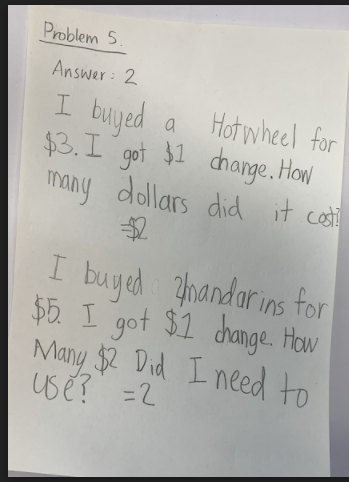 Problem 5.
Answer: 2
I buyed a Hotwheel for
$3. I got $1 change. How
many dollars did it cost?
=$2
I buyed 2mandarins for
$5. I got $1 change. How
Many $2 Did I need to
use? =2